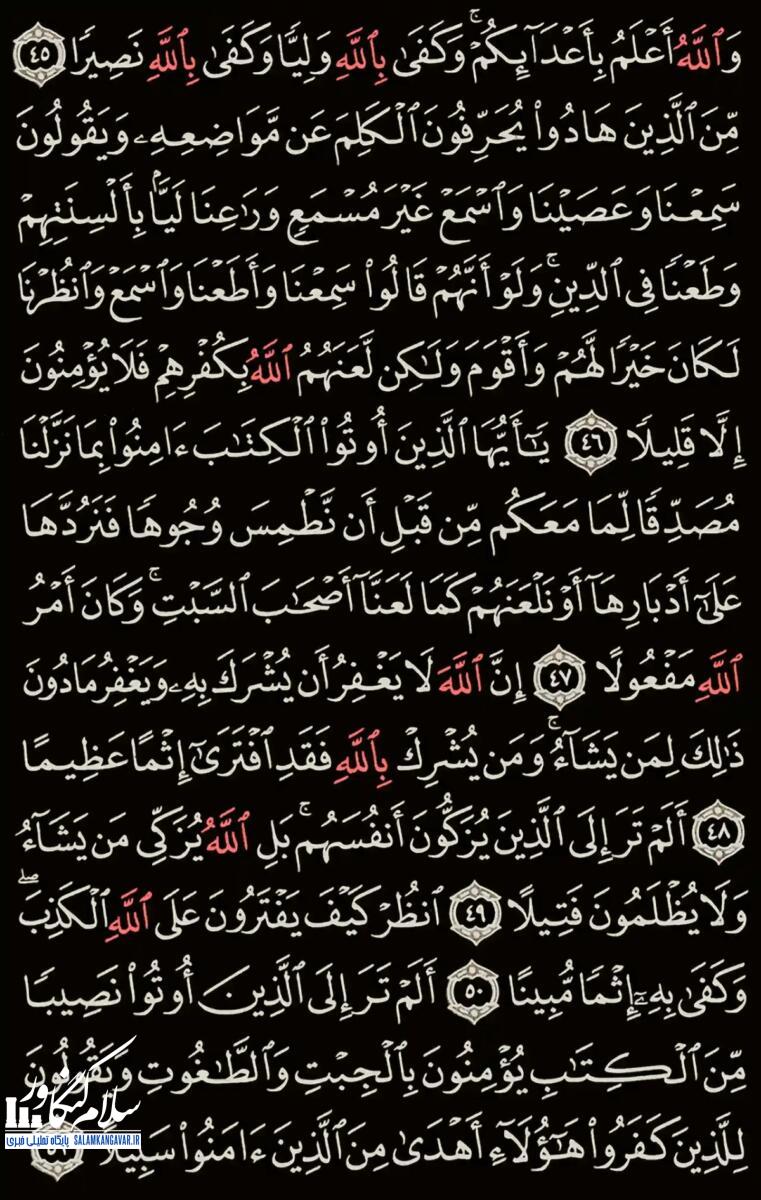 وَٱللَّهُ أَعْلَمُ بِأَعْدَآئِكُمْ ۚ وَكَفَىٰ بِٱللَّهِ وَلِيًّا وَكَفَىٰ بِٱللَّهِ نَصِيرًا ٤٥
مِّنَ ٱلَّذِينَ هَادُوا۟ يُحَرِّفُونَ ٱلْكَلِمَ عَن مَّوَاضِعِهِۦ وَيَقُولُونَ
سَمِعْنَا وَعَصَيْنَا وَٱسْمَعْ غَيْرَ مُسْمَعٍ وَرَٰعِنَا لَيًّۢا بِأَلْسِنَتِهِمْ
وَطَعْنًا فِى ٱلدِّينِ ۚ وَلَوْ أَنَّهُمْ قَالُوا۟ سَمِعْنَا وَأَطَعْنَا وَٱسْمَعْ وَٱنظُرْنَا
لَكَانَ خَيْرًا لَّهُمْ وَأَقْوَمَ وَلَٰكِن لَّعَنَهُمُ ٱللَّهُ بِكُفْرِهِمْ فَلَا يُؤْمِنُونَ
إِلَّا قَلِيلًا ٤٦ يَٰٓأَيُّهَا ٱلَّذِينَ أُوتُوا۟ ٱلْكِتَٰبَ ءَامِنُوا۟ بِمَا نَزَّلْنَا
مُصَدِّقًا لِّمَا مَعَكُم مِّن قَبْلِ أَن نَّطْمِسَ وُجُوهًا فَنَرُدَّهَا
عَلَىٰٓ أَدْبَارِهَآ أَوْ نَلْعَنَهُمْ كَمَا لَعَنَّآ أَصْحَٰبَ ٱلسَّبْتِ ۚ وَكَانَ أَمْرُ
ٱللَّهِ مَفْعُولًا ٤٧ إِنَّ ٱللَّهَ لَا يَغْفِرُ أَن يُشْرَكَ بِهِۦ وَيَغْفِرُ مَا دُونَ
ذَٰلِكَ لِمَن يَشَآءُ ۚ وَمَن يُشْرِكْ بِٱللَّهِ فَقَدِ ٱفْتَرَىٰٓ إِثْمًا عَظِيمًا
٤٨ أَلَمْ تَرَ إِلَى ٱلَّذِينَ يُزَكُّونَ أَنفُسَهُم ۚ بَلِ ٱللَّهُ يُزَكِّى مَن يَشَآءُ
وَلَا يُظْلَمُونَ فَتِيلًا ٤٩ ٱنظُرْ كَيْفَ يَفْتَرُونَ عَلَى ٱللَّهِ ٱلْكَذِبَ ۖ
وَكَفَىٰ بِهِۦٓ إِثْمًا مُّبِينًا ٥٠ أَلَمْ تَرَ إِلَى ٱلَّذِينَ أُوتُوا۟ نَصِيبًا
مِّنَ ٱلْكِتَٰبِ يُؤْمِنُونَ بِٱلْجِبْتِ وَٱلطَّٰغُوتِ وَيَقُولُونَ
لِلَّذِينَ كَفَرُوا۟ هَٰٓؤُلَآءِ أَهْدَىٰ مِنَ ٱلَّذِينَ ءَامَنُوا۟ سَبِيلًا ٥١
سلام کنگاور
پایگاه تحلیلی خبری SALAMKANGAVAR.IR